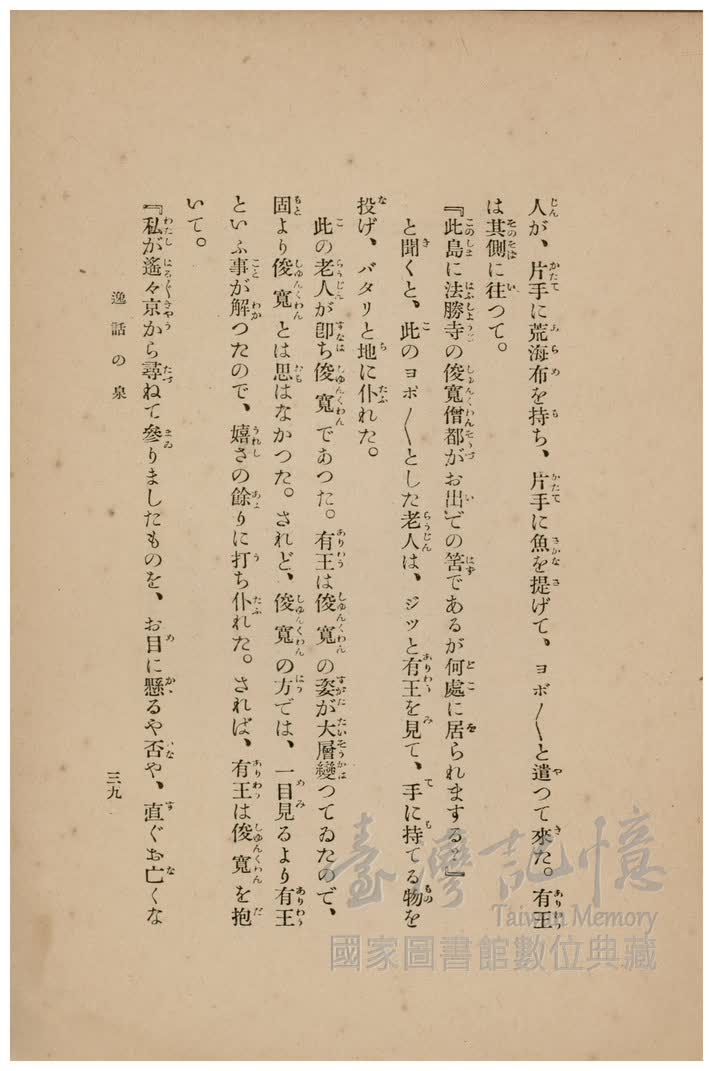 人が、片手に荒海布を持ち、片手に魚を提げて、ヨボ〳〵と遣つて來た。有王
は其側に往つて。
『此島に法勝寺の俊寬僧都がお出での筈であるが何處に居られまする？』
と聞くと、此のヨボ〳〵とした老人は、ジツと有王を見て、手に持てる物を
投げ、バタリと地に仆れた。
此の老人が卽ち俊寬であつた。有王は俊寬の姿が大層變つてゐたので、
固より俊寬とは思はなかつた。されど、俊寬の方では、一目見るより有王
といふ事が解つたので、嬉さの餘りに打ち仆れた。されば、有王は俊寬を抱
いて。
『私が遙々京から尋ねて參りましたものを、お目に懸るや否や、直ぐお亡くな
逸話の泉
三九
臺灣記憶
Taiwan Memory
國家圖書館數位典藏